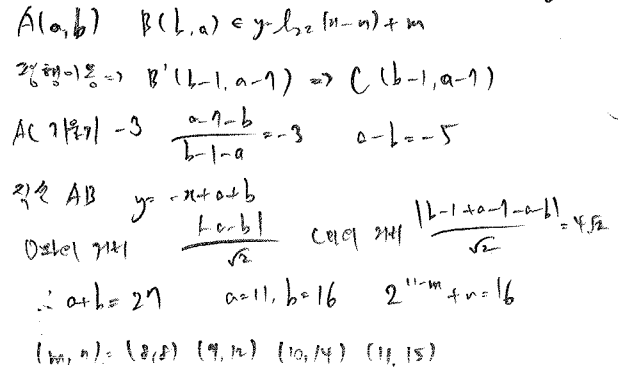 A(a,b)   B(b,a) ∈ y=log₂(x-n)+m
평행이동=> B'(b-1, a-7) => C(b-1, a-7)
AC 기울기 -3   (a-7-b)/(b-1-a) = -3   a-b=-5
직선 AB   y=-x+a+b
O와의 거리   |-a-b|/√2   C와의 거리   |b-1+a-7-a-b|/√2 = 4√2
∴ a+b=27   a=11, b=16   2^(11-m)+n=16
(m,n)=(8,8) (9,12) (10,14) (11,15)